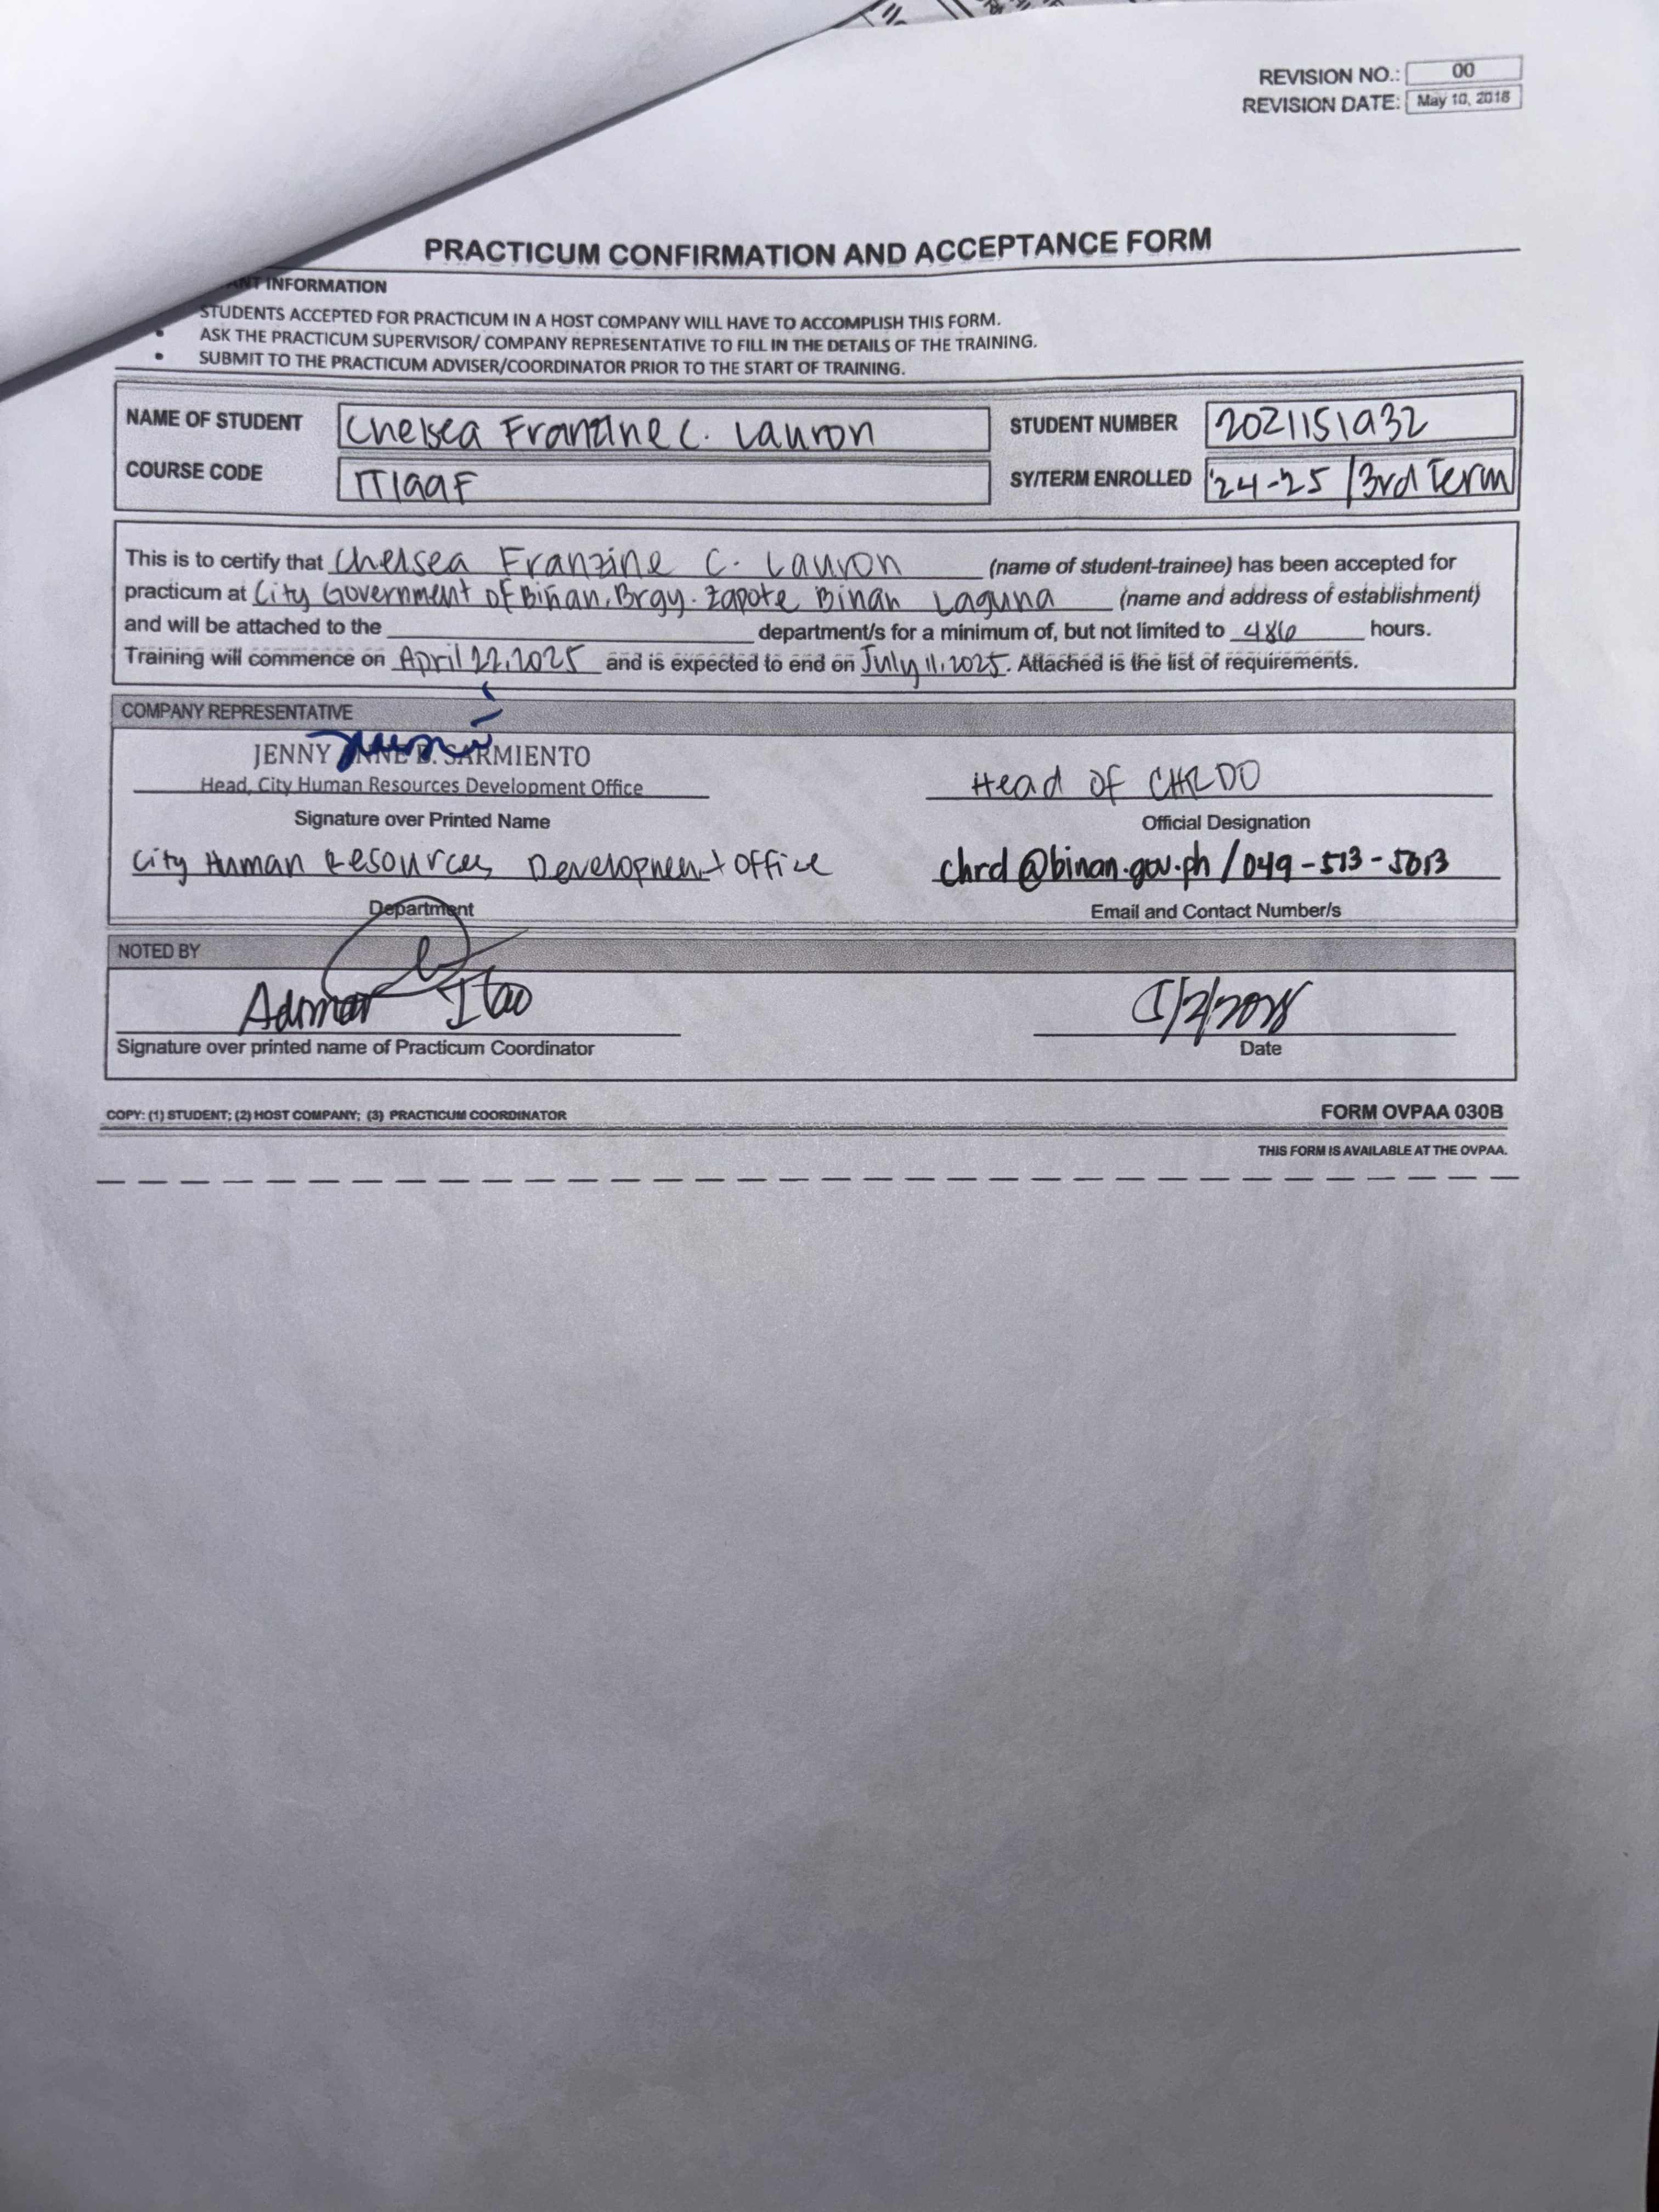 REVISION NO.: 00
REVISION DATE: May 10, 2016
PRACTICUM CONFIRMATION AND ACCEPTANCE FORM
INFORMATION
STUDENTS ACCEPTED FOR PRACTICUM IN A HOST COMPANY WILL HAVE TO ACCOMPLISH THIS FORM.
• ASK THE PRACTICUM SUPERVISOR/ COMPANY REPRESENTATIVE TO FILL IN THE DETAILS OF THE TRAINING.
• SUBMIT TO THE PRACTICUM ADVISER/COORDINATOR PRIOR TO THE START OF TRAINING.
NAME OF STUDENT Chelsea Franzine C. Lauron STUDENT NUMBER 2021151932
COURSE CODE IT199F SY/TERM ENROLLED '24-25 / 3rd Term
This is to certify that Chelsea Franzine C. Lauron (name of student-trainee) has been accepted for
practicum at City Government of Biñan, Brgy. Zapote Binan Laguna (name and address of establishment)
and will be attached to the department/s for a minimum of, but not limited to 486 hours.
Training will commence on April 22, 2025 and is expected to end on July 11, 2025. Attached is the list of requirements.
COMPANY REPRESENTATIVE
JENNY ANNE D. SARMIENTO
Head, City Human Resources Development Office Head of CHRDO
Signature over Printed Name Official Designation
City Human Resources Development Office chrd@binan.gov.ph / 049-513-5013
Department Email and Contact Number/s
NOTED BY
Admar Itao
Signature over printed name of Practicum Coordinator Date
COPY: (1) STUDENT; (2) HOST COMPANY; (3) PRACTICUM COORDINATOR FORM OVPAA 030B
THIS FORM IS AVAILABLE AT THE OVPAA.